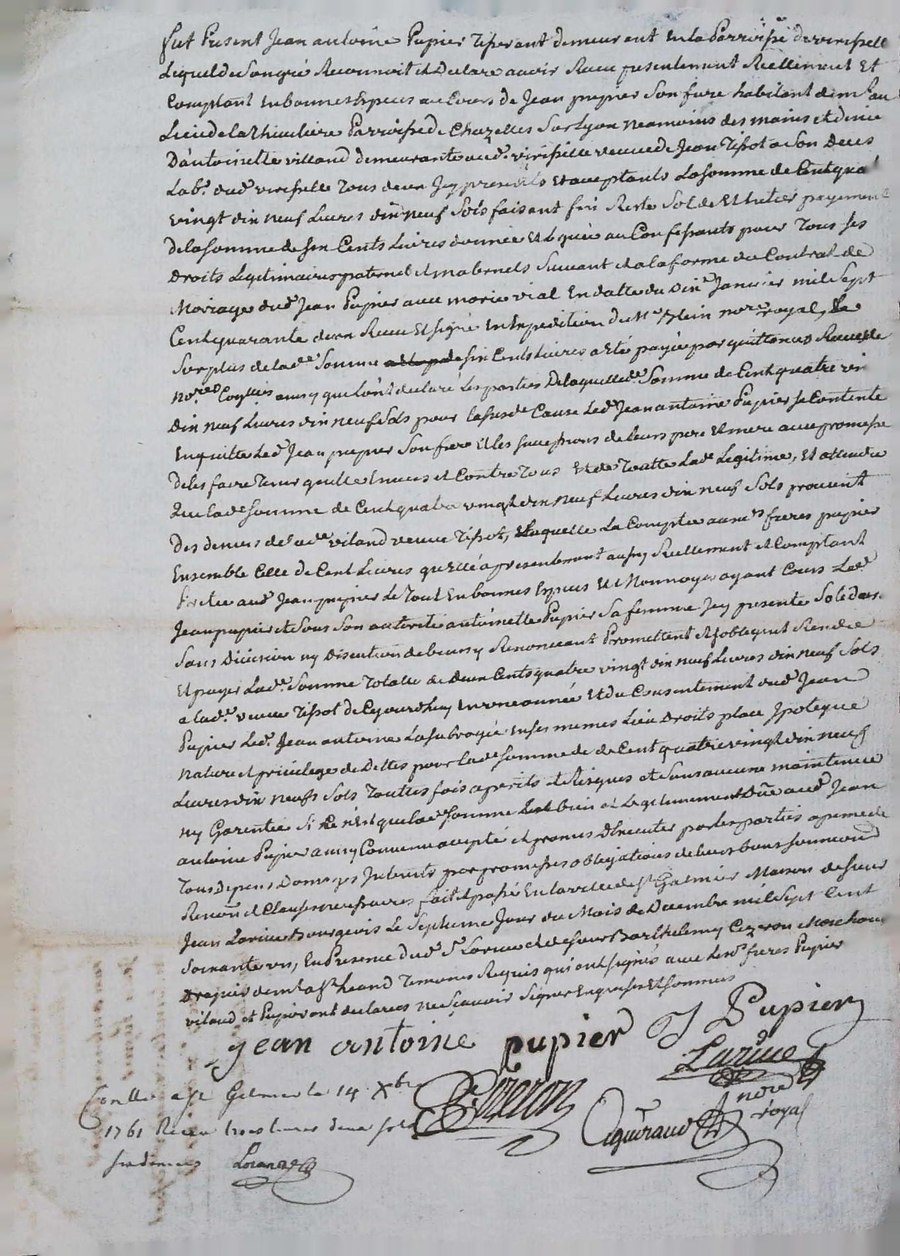 fut Present Jean antoine Pupier Tisserant demeurant En la Parroisse de virisselle
Lequel de Son gré Reconnoit et Declare avoir Receu presentement Reellement Et
Comptant En bonnes Especes au Cours de Jean pupier Son frere habitant demt au
Lieu de la Thieuliere Parroisse de Chazelles Sur Lyon neamoins des mains et deniers
D'antoinette villand demeurante aud. virisselle veuve de Jean Tissot a Son Deces
Labr. dud. virisselle Tous deux Icy presents Et acceptants La Somme de Cent quatre
vingt dix neuf Livres dix neuf Sols faisant fin Reste Solde Et Entier payement
De la Somme de Six Cents Livres donnée Et Léguée au Confessants pour Tous Ses
Droits Legitimaires paternel et maternels Suivant et a la forme du Contrat de
Mariage dud. Jean Pupier avec marie vial En datte du Dixe. Janvier mil Sept
Cent quarante deux Receu Et Signé En Expedition du Me. Blein nore. royal, Le
Surplus de lade. Somme de Six Cents Livres a eté payée par quittances Receues de
nore. ainsy que L'ont declaré Les parties De laquelle de. Somme de Cent quatre vin
dix neuf Livres dix neuf Sols pour la Susde. Cause Led. Jean antoine Pupier Se Contente
En quitte Led. Jean pupier Son frere Et les Successions de Leurs pere Et mere avec promesse
De les faire Tenir quittes Envers et Contre Tous Et de Toutte Lade. Legitime, Et attendu
Que lade. Somme de Cent quatre vingt dix neuf Livres dix neuf Sols provient
Des deniers de lade. viland veuve Tissot, Laquelle La Comptée auxds. freres pupier
Ensemble Celle de Cent Livres qu'elle a presentement aussy Reellement et Comptant
Pretée aud. Jean pupier Le Tout En bonnes Especes Et Monnoyes ayant Cours Led.
Jean pupier et Sous Son autorité antoinette Pupier Sa femme Icy presente Solidair.
Sans Division ny Discution de biens y Renonceant Promettent et S'obligent Rendre
Et payer Lade. Somme Totalle de Deux Cents quatre vingt dix neuf Livres dix neuf Sols
a lade. veuve Tissot De Ce jourdhuy En une année Et du Consentement dud. Jean
Pupier Led. Jean antoine La Subrogée En Ses mêmes Lieu Droits place Ipoteque
Nature et privilege de Dettes pour lade. Somme de Cent quatre vingt dix neuf
Livres dix neuf Sols Toutte fois a perils et Risques et Sans aucune maintenue
ny Garentie Si Ce n'est que lade. Somme Est bien et Legitimement Due aud. Jean
antoine Pupier ainsy Convenu accepté et promis D'Executer par les parties a peine de
Tous Depens Domages Interets par promesses obligations de leurs biens Soumissions
Renons. et Clauses necessaires fait et passé En la ville de St. Galmier Maison de Sieur
Jean Larive Bourgeois Le Septieme Jour du Mois de Decembre mil Sept Cent
Soixante un, En Presence dud. Sr. Larive et de Sieur Barthelemy Cezeron Marchand
Drapier dem. a St. heand Temoins Requis qui ont Signés avec Lesds. freres Pupier
vilaud et Pupier ont declarées ne Scavoir Signer Enquises Et Sommées
Jean antoine pupier J Pupier
Larive
Cezeron
nore. royal
Conllé a St Galmier le 14 Xbre
1761 Receu trois livres deux sols